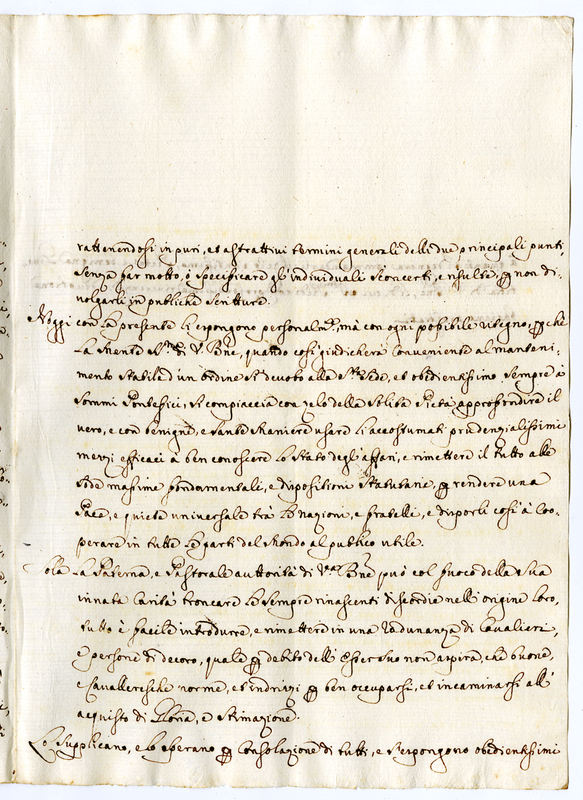 rattenendosi in puri, et astrattivi termini generali delli due principali punti,
senza far motto, ò specificare gl' individuali sconcerti, e risulte, p non di-
volgarli in publiche scritture.
Hoggi con la presente li espongono personalmte, mà con ogni possibile ritegno, p chè
la mente Sta di V. Bne, quando così giudicherà conveniente al manteni-
mento stabile d'un ordine sì devoto alla Sta Sede, et obedientissimo sempre à
Sommi Pontefici, si compiaccia con zelo della solita Pietà approfondire il
vero, e con benigne, e sante maniere usare li accostumati prudenzialissimi
mezzi efficaci à ben conoscere lo stato degl' affari, e rimettere il tutto alle
sode massime fondamentali, e disposizioni statutarie, p rendere una
Pace, e quiete universale trà le nazioni, e fratelli, e disporli così à coo-
perare in tutte le parti del Mondo al publico utile.
Sola la Paterna, e Pastorale auttorità di Vra Bne può col fuoco della sua
innata Carità troncare le sempre rinascenti discordie nell' origine loro,
tutto è facile introdurre, e rimettere in una Radunanza di Cavalieri,
e persone di decoro, quale p debito dell' esser suo non aspira, che buone,
e Cavalleresche norme, et indrizzi p ben occuparsi, et incaminarsi all'
acquisto di Gloria, e stimazione.
Lo supplicano, e lo sperano p consolazione di tutti, e s'espongono obedientissimi